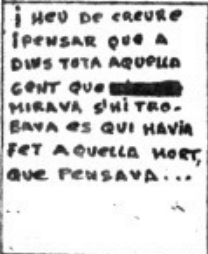 i HEU DE CREURE
i PENSAR QUE A
DINS TOTA AQUELLA
GENT QUE
MIRAVA S'HI TRO-
BAVA ES QUI HAVIA
FET AQUELLA MORT,
QUE PENSAVA...